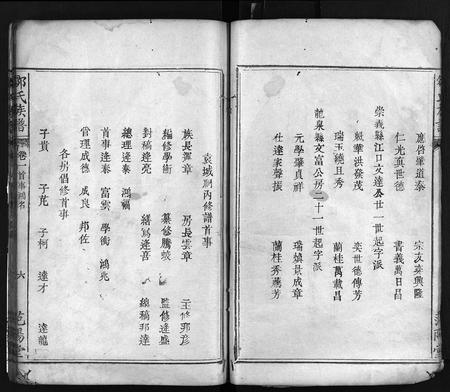 應啓肇道泰 宗友奏興隆
仁光貞世德 書義萬日昌
崇義縣江口文達公廿一世起字派
毓華洪發茂 奕世德傳芳
瑞玉繞且秀 蘭桂萬載昌
龍泉縣文富公房二十一世起字派
元學肇貞祥 瑞煥景成章
仕達家聲振 蘭桂秀騰芳
袁城 丙修譜首事
族長 章 房長雲章 主修邦彥
編修學衡 纂修騰蛟 監修達盛
對稿達亮 繕寫達吾 總稿邦達
總理達泰 鴻
首事達逢 富雲 學衡 鴻兆
管理成德 成良 邦佐
各房倡修首事
子貴 子芃 子柯 達才 達龍
鄒氏族譜 卷 首事 名 六 范陽堂